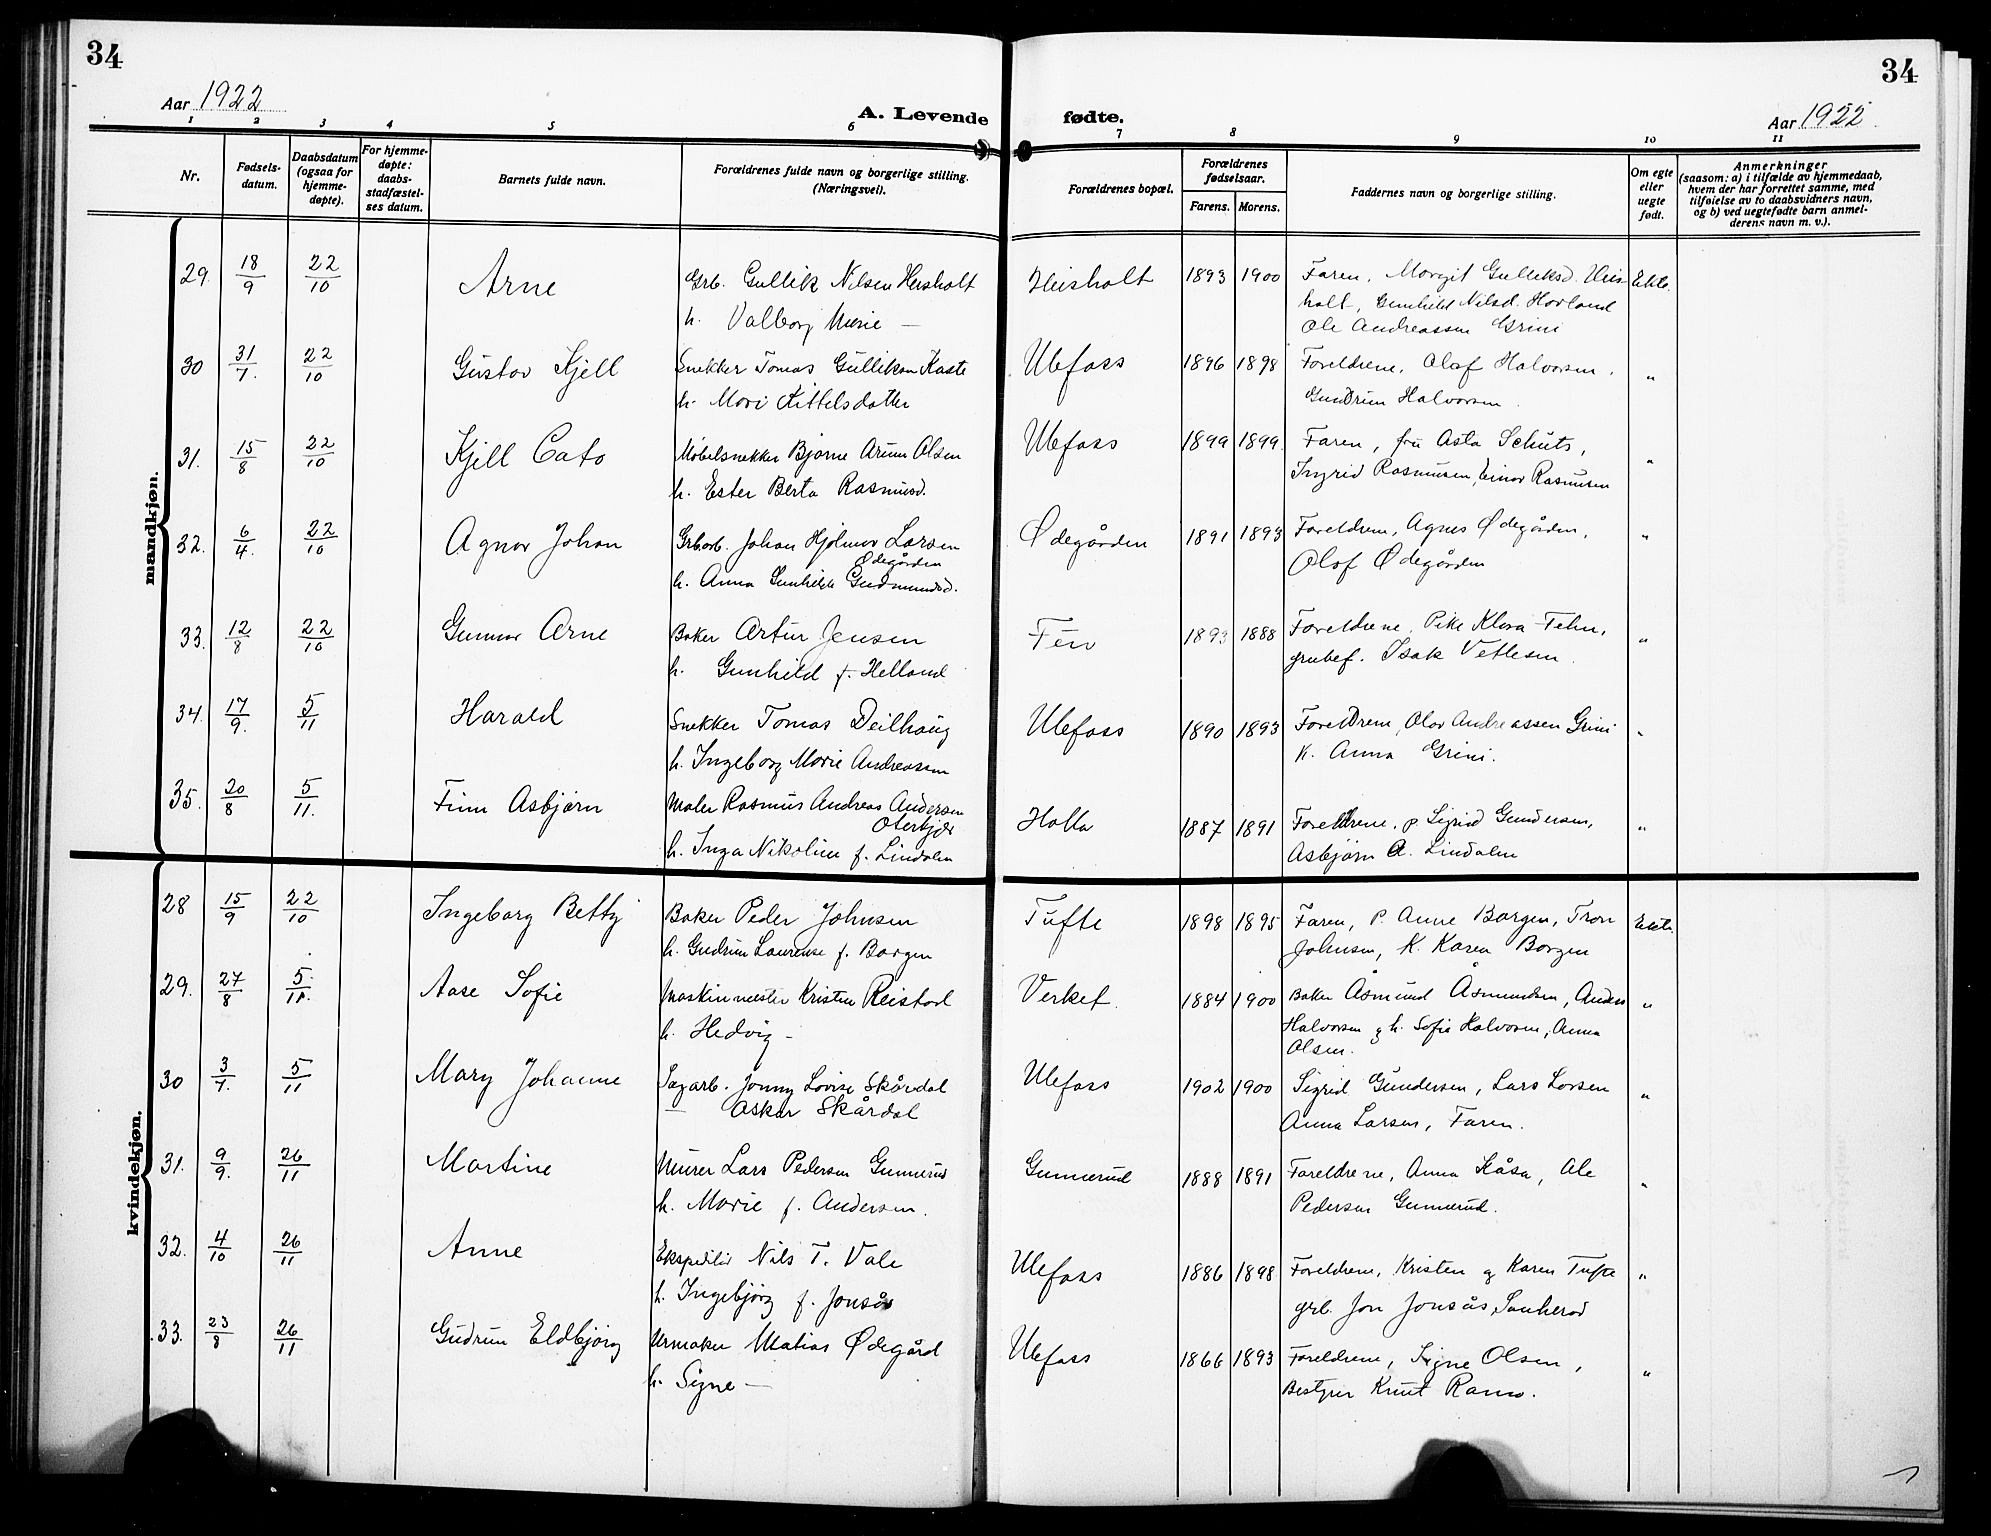 34
34
Aar 1922
A. Levende fødte.
Aar 1922
1 2 3 4 5 6 7 8 9 10 11
Nr.
Fødsels-
datum.
Daabsdatum
(ogsaa for
hjemme-
døpte).
For hjemme-
døpte:
daabs-
stadfæstel-
ses datum.
Barnets fulde navn.
Forældrenes fulde navn og borgerlige stilling.
(Næringsvei).
Forældrenes bopæl.
Forældrenes
fødselsaar.
Farens. Morens.
Faddernes navn og borgerlige stilling.
Om egte
eller
uegte
født.
Anmerkninger
(saasom: a) i tilfælde av hjemmedaab,
hvem der har forrettet samme, med
tilføielse av to daabsvidners navn,
og b) ved uegtefødte barn anmel-
derens navn m. v.).
mandkjøn.
29. 18/9 22/10 Arne Grb. Gullik Nilsen Heisholt Heisholt 1893 1900 Faren, Margit Gulliksd. Heis- Ekte.
h. Valborg Marie — holt, Gunhild Nilsd. Hovland
Ole Andreassen Grini
30 31/7. 22/10 Gustav Kjell Snekker Tomas Gulliksen Kaste Ulefoss 1896 1898 Foreldrene, Olaf Halvorsen, "
h. Mari Kittelsdatter Gundrun Halvorsen.
31. 15/8 22/10 Kjell Cato Møbelsnekker Bjarne Arum Olsen Ulefoss 1899 1899. Faren, fru Asta Schuts, "
h. Ester Berta Rasmusd. Ingrid Rasmusen, Einar Rasmusen
32. 6/4. 22/10 Agnar Johan Grbarb. Johan Hjalmar Larsen Ødegården 1891 1893 Foreldrene, Agnes Ødegården, "
Ødegården
h. Anna Gunhilde Gudmundsd. Olaf Ødegården
33. 12/8 22/10 Gunnar Arne Baker Artur Jensen Fen 1893 1888 Foreldrene, Pike Klara Fehn, "
h. Gunhild f. Helland grubef. Isak Vetlesen.
34. 17/9. 5/11 Harald Snekker Tomas Deilhaug Ulefoss 1890 1893 Foreldrene, Olav Andreassen Grini "
h. Ingeborg Marie Andreassen K. Anna Grini.
35. 20/8 5/11. Finn Asbjørn Maler Rasmus Andreas Andersen Holla 1887 1891 Foreldrene, p Sigrid Gundersen, "
Oterkjær
h. Inga Nikoline f. Lindalen Asbjørn A. Lindalen
kvindekjøn.
28 15/9 22/10 Ingeborg Betty Baker Peder Johnsen Tufte 1898 1895 Faren, P. Anne Borgen, Tron Ekte.
h. Gudrun Laurense f. Borgen Johnsen, K. Karen Borgen
29. 27/8 5/11. Aase Sofie Maskinmester Kristen Reistad Verket. 1884 1900 Baker Åsmund Åsmundsen, Anders "
h. Hedvig — Halvorsen g h. Sofie Halvorsen, Anna
Olsen.
30 3/7. 5/11 Mary Johanne Sagarb. Jonny Lovise Skårdal Ulefoss 1902 1900 Sigrid Gundersen, Lars Larsen "
— Asker Skårdal Anna Larsen, Faren.
31. 9/9. 26/11 Martine Murer Lars Pedersen Gunnerud Gunnerud 1888 1891 Foreldrene, Anna Kåsa, Ole "
h. Marie f. Andersen. Pedersen Gunnerud.
32. 4/10 26/11 Anne Ekspeditør Nils T. Vale Ulefoss 1886 1898 Foreldrene, Kristen g Karen Tufte "
h. Ingebjørg f. Jonsås grb. Jon Jonsås, Sauherad
33. 23/8 26/11 Gudrun Eldbjørg Urmaker Matias Ødegård Ulefoss 1866 1893 Foreldrene, Signe Olsen, "
h. Signe — Bestyrer Knut Ramo.